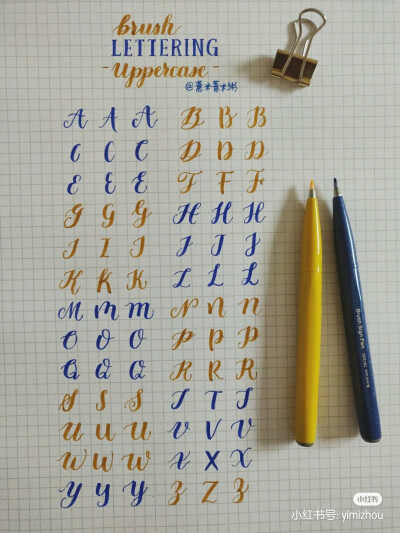 brush
LETTERING
- Uppercase -
@薏米薏米粥
A A A B B B
C C C D D D
E E E F F F
G G G H H H
I I I J J J
K K K L L L
M m m N n n
O O O P P P
Q Q Q R R R
S S S T T T
U U U V V V
W W W X X X
Y Y Y Z Z Z
Brush Sign Pen
小红书
小红书号: yimizhou